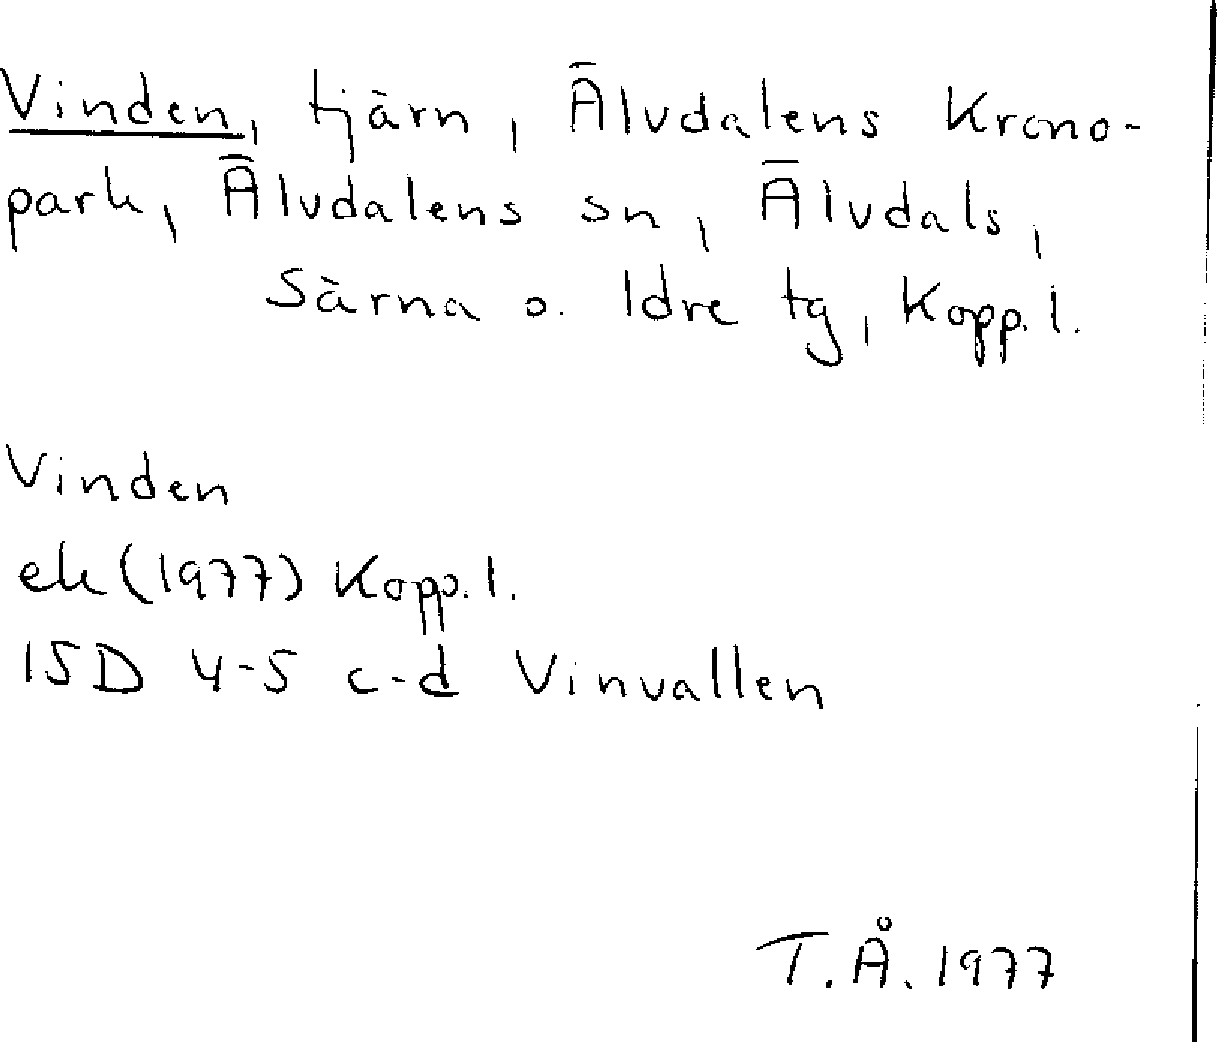 Vinden, tjärn, Älvdalens Krono-
park, Älvdalens sn, Älvdals,
Särna o. Idre tg, Kopp. l.
Vinden
ek (1977) Kopp. l.
15D 4-5 c-d Vinvallen
T.Å. 1977